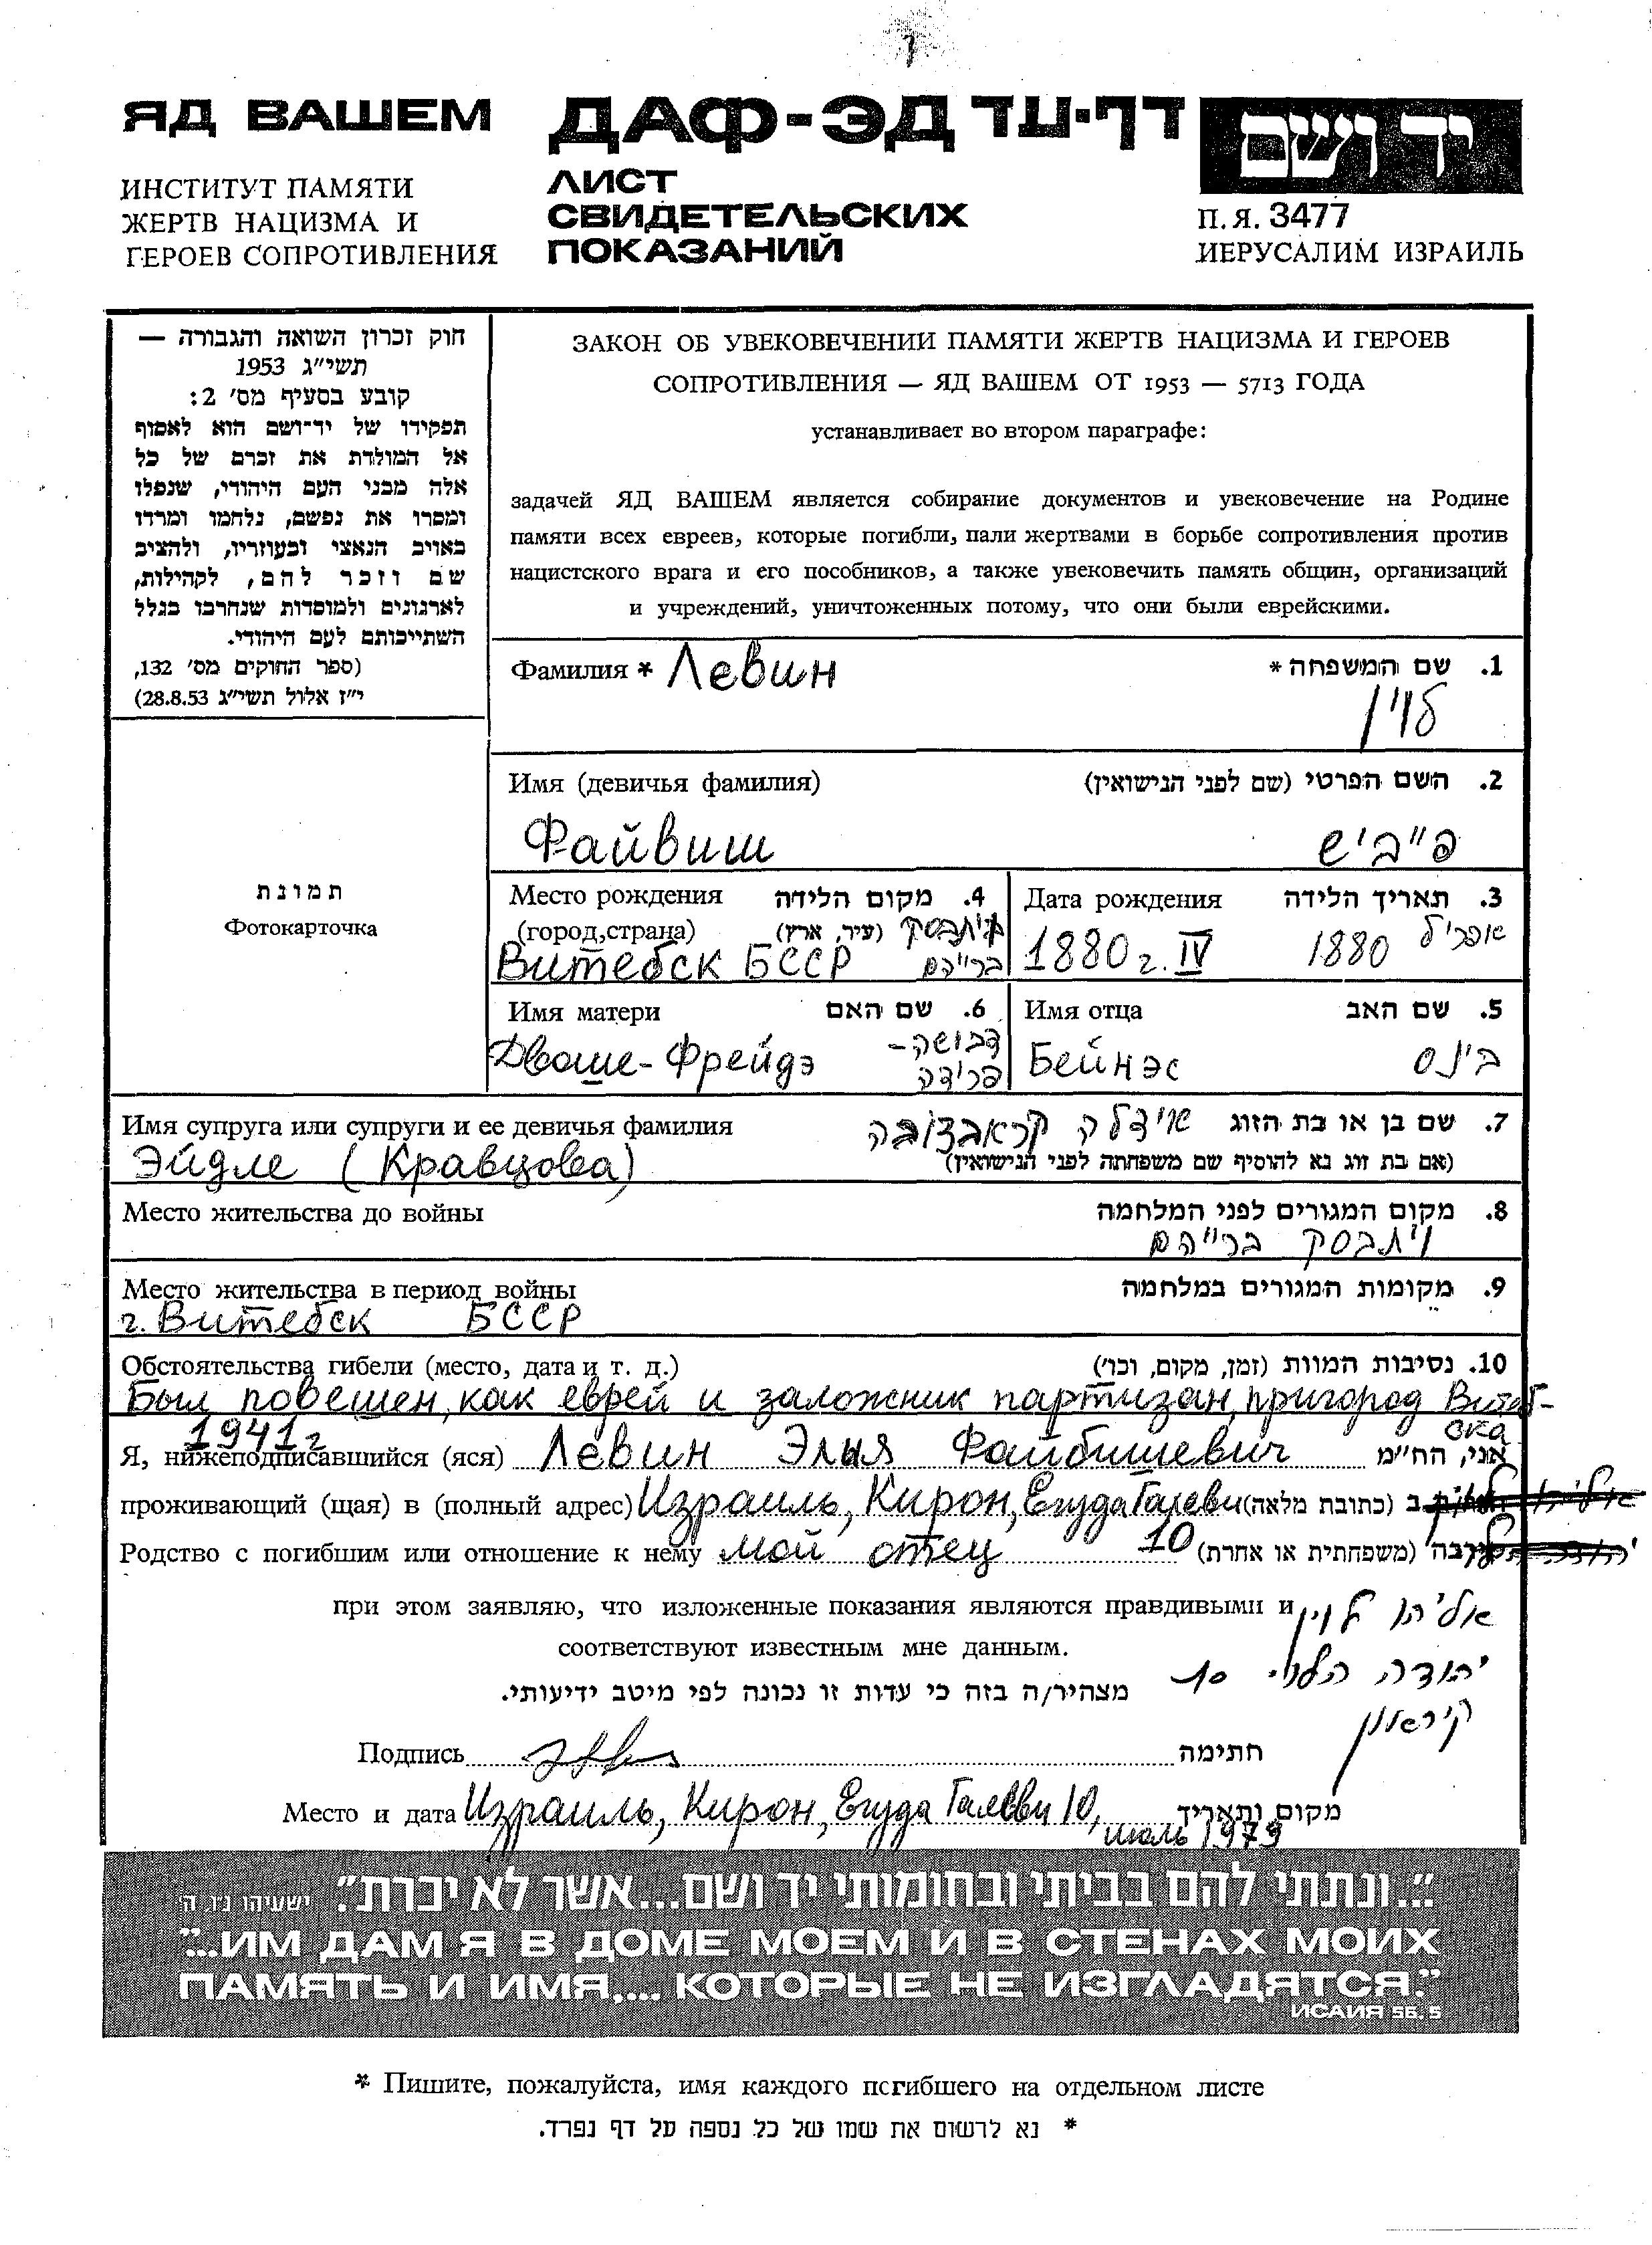 ЯД ВАШЕМ
ИНСТИТУТ ПАМЯТИ
ЖЕРТВ НАЦИЗМА И
ГЕРОЕВ СОПРОТИВЛЕНИЯ
ДАФ-ЭД דף-עד
ЛИСТ
СВИДЕТЕЛЬСКИХ
ПОКАЗАНИЙ
יד ושם
П.Я. 3477
ИЕРУСАЛИМ ИЗРАИЛЬ
חוק זכרון השואה והגבורה —
תשי״ג 1953
קובע בסעיף מס׳ 2:
תפקידו של יד־ושם הוא לאסוף
אל המולדת את זכרם של כל
אלה מבני העם היהודי, שנפלו
ומסרו את נפשם, נלחמו ומרדו
באויב הנאצי ובעוזריו, ולהציב
שם וזכר להם, לקהילות,
לארגונים ולמוסדות שנחרבו בגלל
השתייכותם לעם היהודי.
(ספר החוקים מס׳ 132,
י״ז אלול תשי״ג 28.8.53)
ЗАКОН ОБ УВЕКОВЕЧЕНИИ ПАМЯТИ ЖЕРТВ НАЦИЗМА И ГЕРОЕВ
СОПРОТИВЛЕНИЯ — ЯД ВАШЕМ ОТ 1953 — 5713 ГОДА
устанавливает во втором параграфе:
задачей ЯД ВАШЕМ является собирание документов и увековечение на Родине
памяти всех евреев, которые погибли, пали жертвами в борьбе сопротивления против
нацистского врага и его пособников, а также увековечить память общин, организаций
и учреждений, уничтоженных потому, что они были еврейскими.
Фамилия * Левин
1. שם המשפחה *
לוין
Имя (девичья фамилия)
2. השם הפרטי (שם לפני הנישואין)
Файвиш
פייביש
תמונת
Фотокарточка
Место рождения 4. מקום הלידה
(город,страна) (עיר, ארץ) ויתבסק
Витебск БССР ברייהם
Дата рождения 3. תאריך הלידה
1880 г. IV 1880 אפריל
Имя матери 6. שם האם
Двоше-Фрейдэ דבושה-
פרידה
Имя отца 5. שם האב
Бейнэс בינס
Имя супруга или супруги и ее девичья фамилия
7. שם בן או בת הזוג אידלה קראבצובה
Эйдле (Кравцова)
(אם בת זוג נא להוסיף שם משפחתה לפני הנישואין)
Место жительства до войны
8. מקום המגורים לפני המלחמה
ויתבסק ברייהם
Место жительства в период войны
9. מקומות המגורים במלחמה
г. Витебск БССР
Обстоятельства гибели (место, дата и т. д.)
10. נסיבות המוות (זמן, מקום, וכו׳)
Был повешен, как еврей и заложник партизан, пригород Витеб-
ска
1941 г
Я, нижеподписавшийся (яся) Левин Элья Файбишевич אני, הח״מ
проживающий (щая) в (полный адрес) Израиль, Кирон, Егуда Галеви (כתובת מלאה) ב
Родство с погибшим или отношение к нему мой отец 10 (משפחתית או אחרת) קירבה
при этом заявляю, что изложенные показания являются правдивыми и
соответствуют известным мне данным.
אליהו לוין
יהודה הלוי 10
קיראון
מצהיר/ה בזה כי עדות זו נכונה לפי מיטב ידיעותי.
Подпись חתימה
Место и дата Израиль, Кирон, Егуда Галеви 10, מקום ותאריך
июль 1979
"...ונתתי להם בביתי ובחומותי יד ושם...אשר לא יכרת". ישעיהו נ״ו, ה׳
"...ИМ ДАМ Я В ДОМЕ МОЕМ И В СТЕНАХ МОИХ
ПАМЯТЬ И ИМЯ,... КОТОРЫЕ НЕ ИЗГЛАДЯТСЯ."
ИСАИЯ 56, 5
* Пишите, пожалуйста, имя каждого погибшего на отдельном листе
* נא לרשום את שמו של כל נספה על דף נפרד.